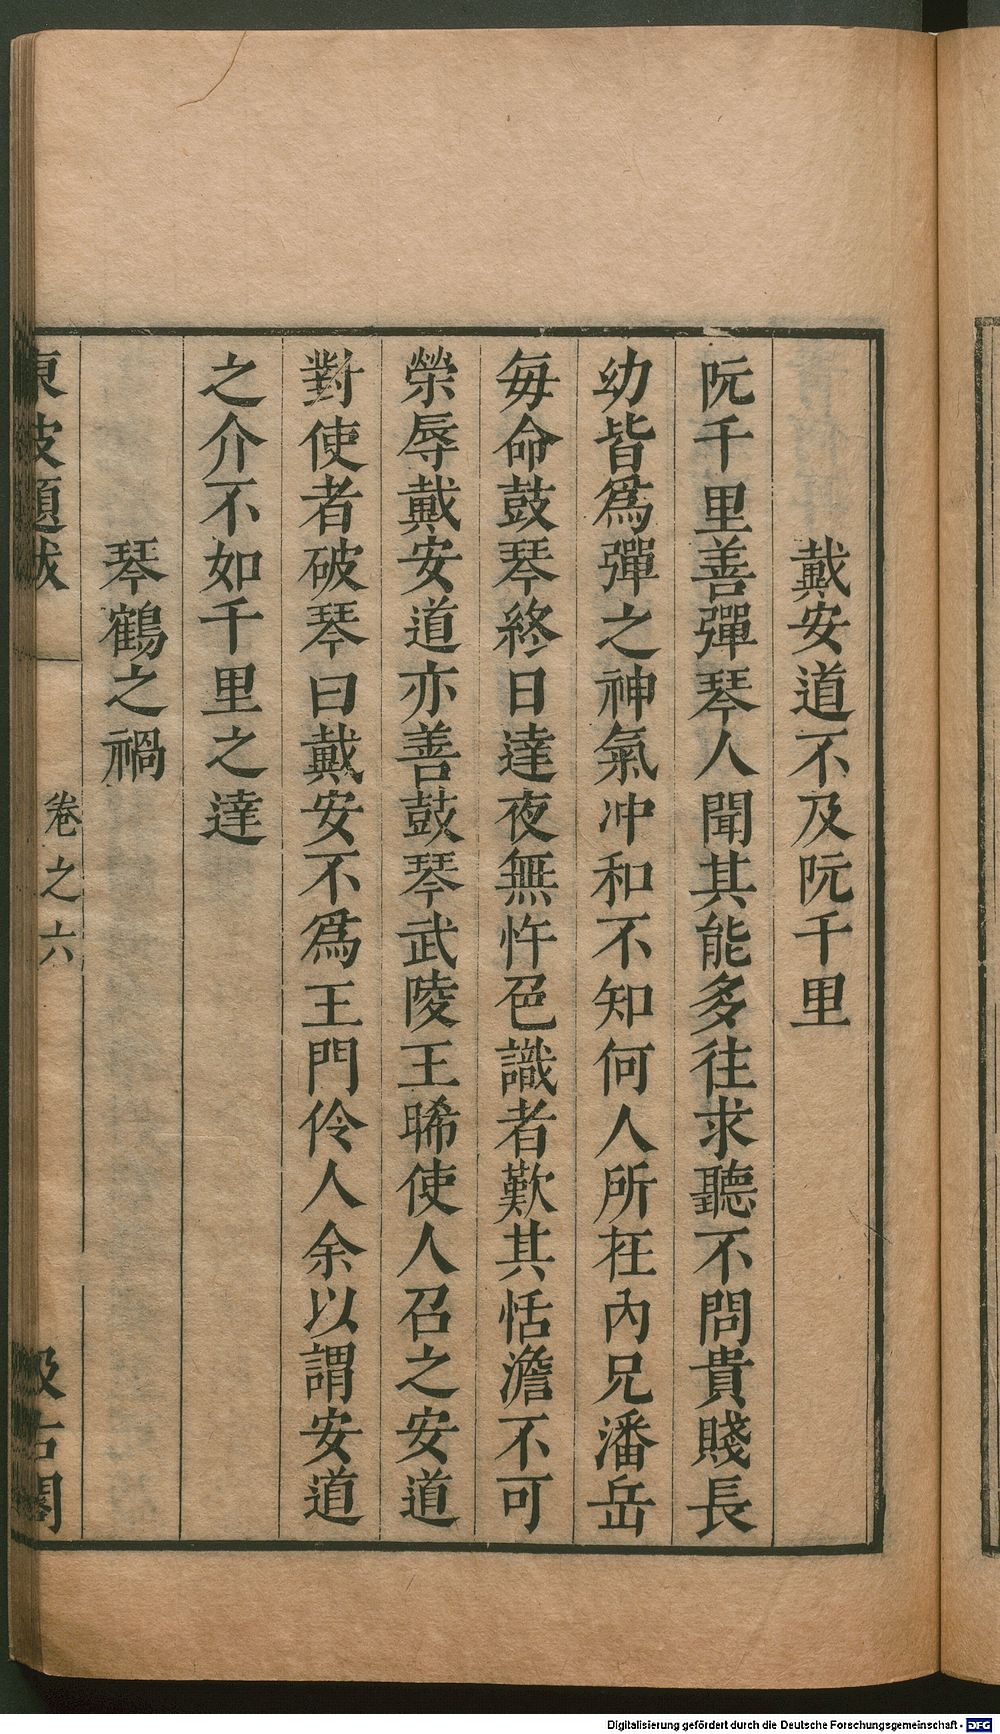 戴安道不及阮千里
阮千里善彈琴人聞其能多往求聽不問貴賤長
幼皆爲彈之神氣冲和不知何人所在內兄潘岳
每命鼓琴終日達夜無忤色識者歎其恬澹不可
榮辱戴安道亦善鼓琴武陵王晞使人召之安道
對使者破琴曰戴安不爲王門伶人余以謂安道
之介不如千里之達
琴鶴之禍
東坡題跋
卷之六
汲古閣
Digitalisierung gefördert durch die Deutsche Forschungsgemeinschaft - DFG